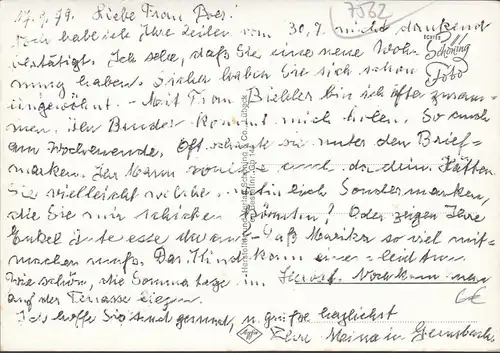 17.9.79. Liebe Frau Boes.
Noch habe ich Ihre Zeilen vom 30.7. nicht dankend
bestätigt. Ich sehe, daß Sie eine neue Woh-
nung haben. Sicher haben Sie sich schon
eingewöhnt. - Mit Frau Bichler bin ich öfter zusam-
men, ihr Bruder kommt mich holen. So auch
am Wochenende. Oft schaute sie unter den Brief-
marken. Ihr Mann und da dein Hätten
Sie vielleicht welche, Sondermarken,
die Sie mir schicken könnten? Oder zeigen Ihre
Enkel Interesse daran - Daß Marika so viel mit-
machen muß. Das Kind kann einem leid tun.
Wie schön, die Sommertage im man
auf der Terrasse liegen.
Ich hoffe Sie sind gesund, u. grüße herzlichst
Ihre Meina in Gernsbach
7562
ECHTES
Schöning
Foto
Schöning & Co., Lübeck
Agfa